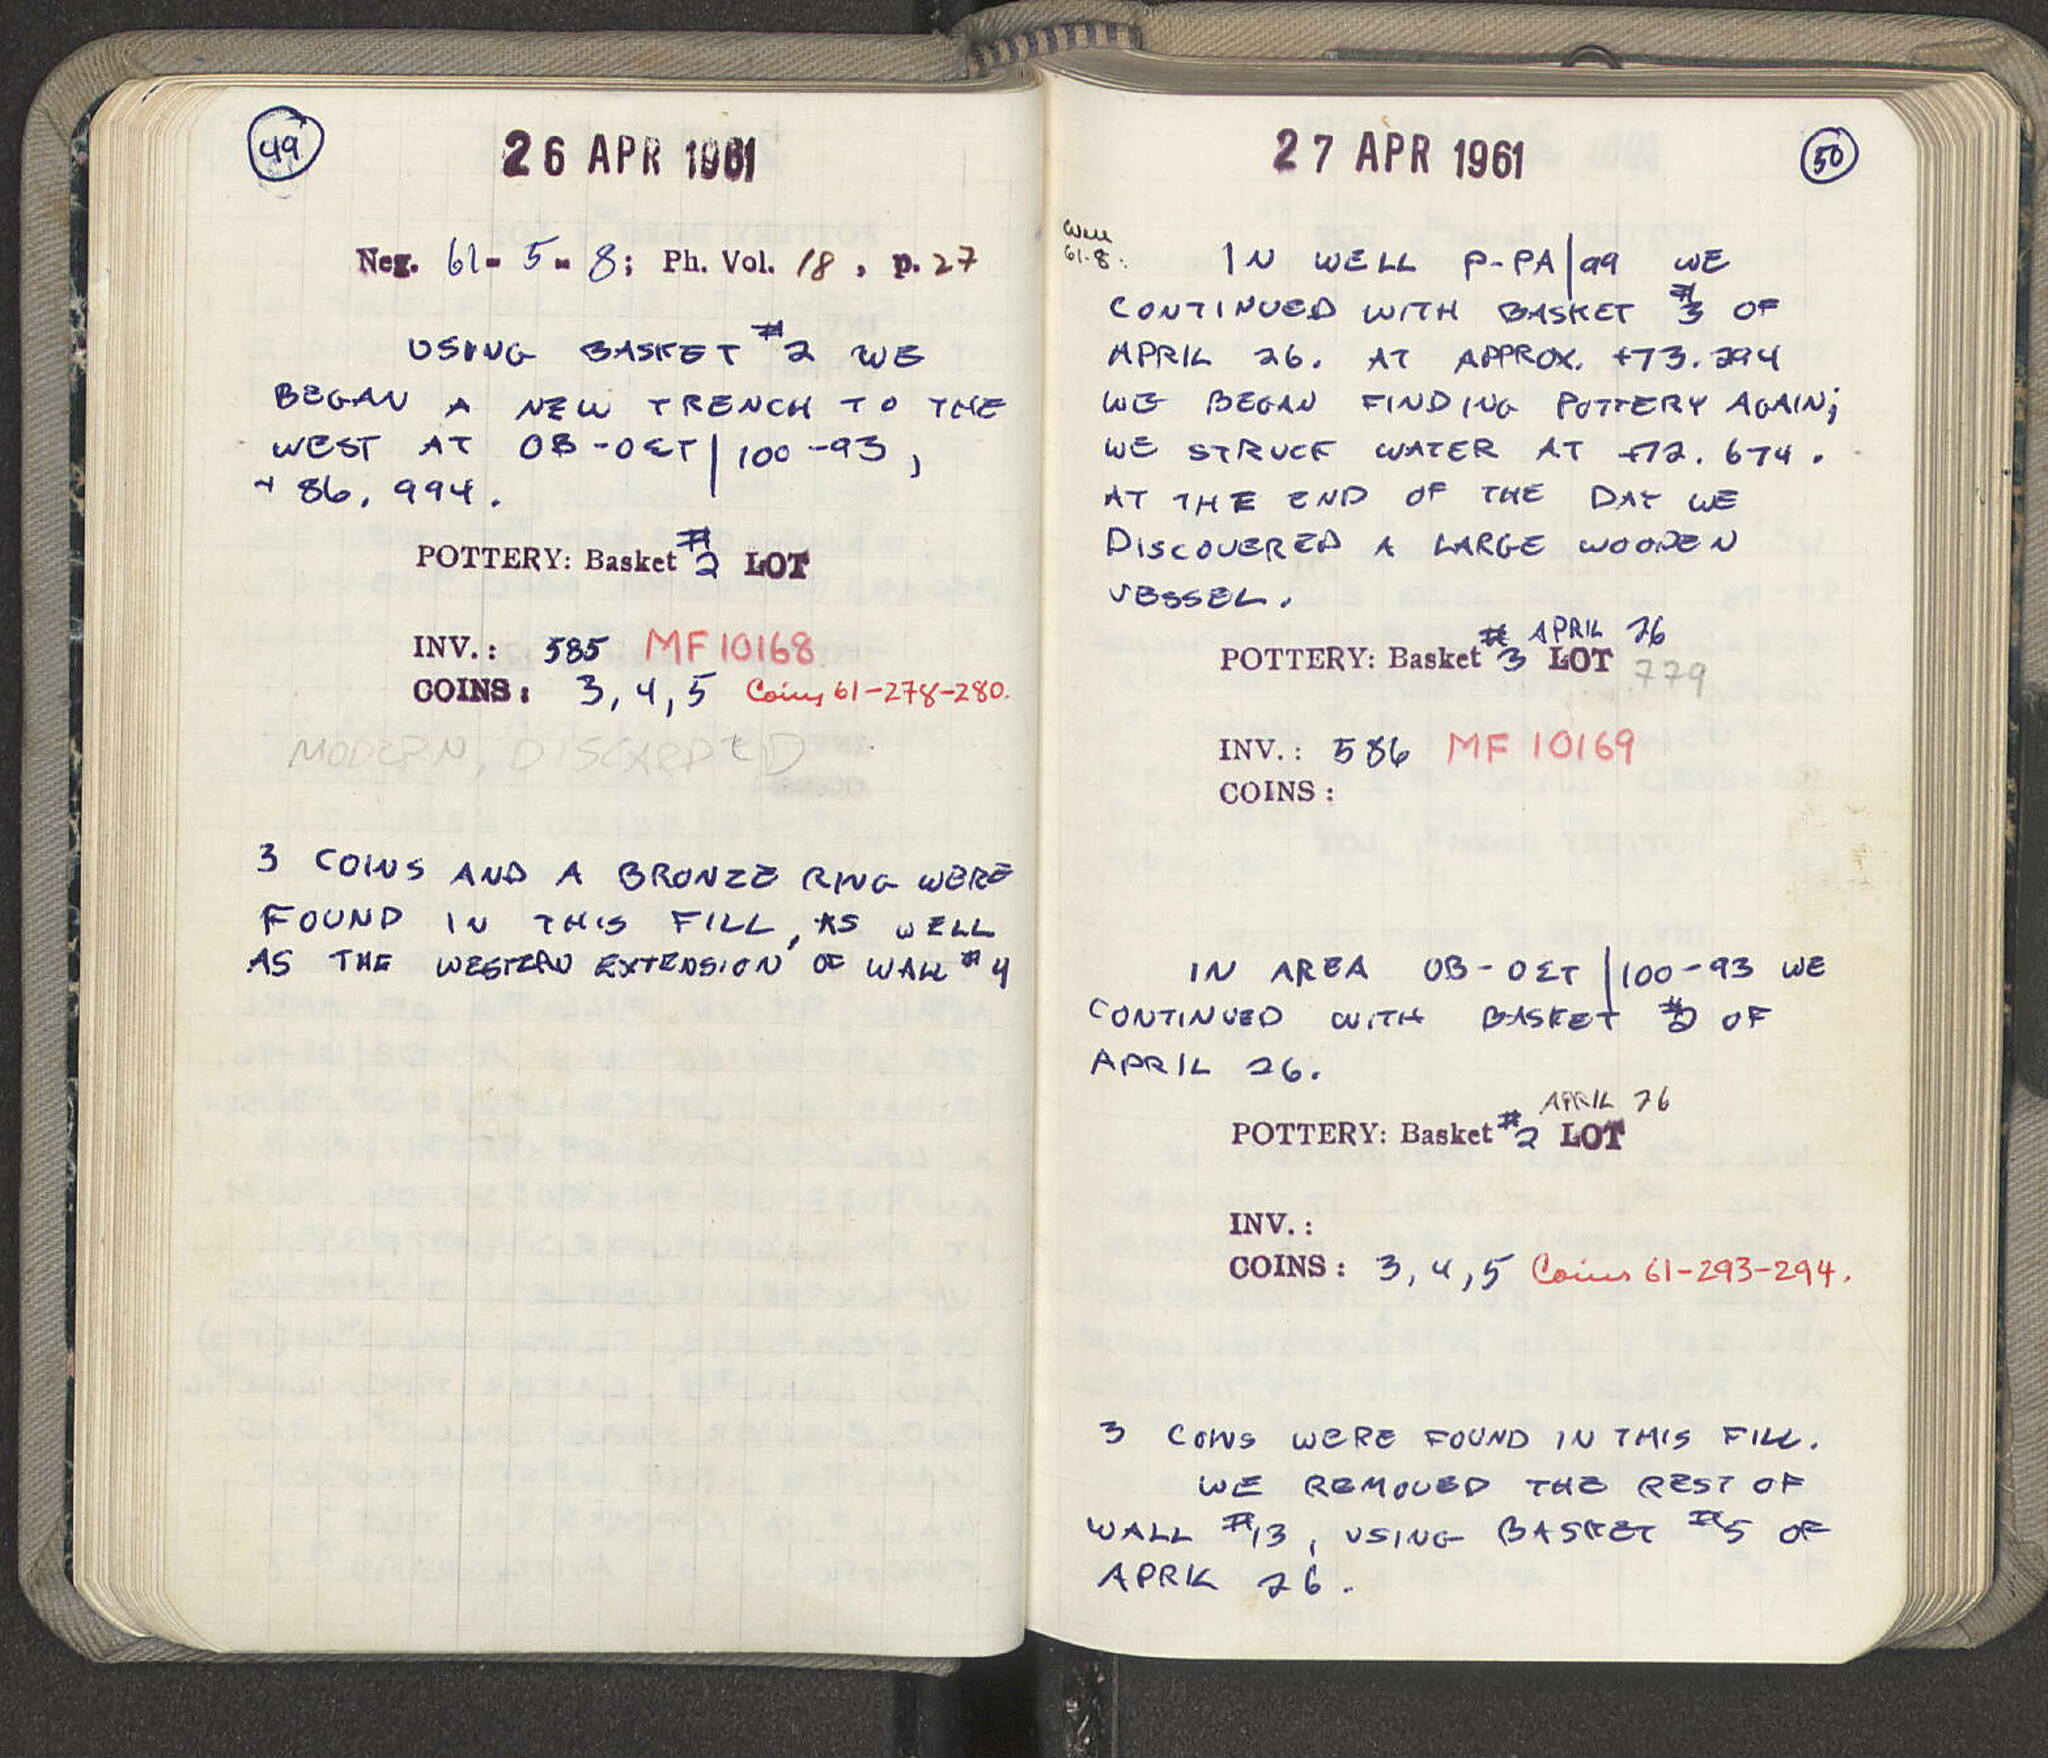 49
26 APR 1961
Neg. 61-5-8; Ph. Vol. 18, p. 27
USING BASKET #2 WE
BEGAN A NEW TRENCH TO THE
WEST AT OB-OΣT|100-93,
+86.994.
POTTERY: Basket #2 LOT
INV.: 585 MF 10168
COINS: 3, 4, 5 Coins 61-278-280.
MODERN, DISCARDED
3 COINS AND A BRONZE RING WERE
FOUND IN THIS FILL, AS WELL
AS THE WESTERN EXTENSION OF WALL #4
27 APR 1961
50
Well
61-8:
IN WELL P-PA|99 WE
CONTINUED WITH BASKET #3 OF
APRIL 26. AT APPROX. +73.294
WE BEGAN FINDING POTTERY AGAIN;
WE STRUCK WATER AT +72.674.
AT THE END OF THE DAY WE
DISCOVERED A LARGE WOODEN
VESSEL.
APRIL 26
POTTERY: Basket #3 LOT 779
INV.: 586 MF 10169
COINS:
IN AREA OB-OΣT|100-93 WE
CONTINUED WITH BASKET #2 OF
APRIL 26.
APRIL 26
POTTERY: Basket #2 LOT
INV.:
COINS: 3, 4, 5 Coins 61-293-294.
3 COINS WERE FOUND IN THIS FILL.
WE REMOVED THE REST OF
WALL #13, USING BASKET #5 OF
APRIL 26.